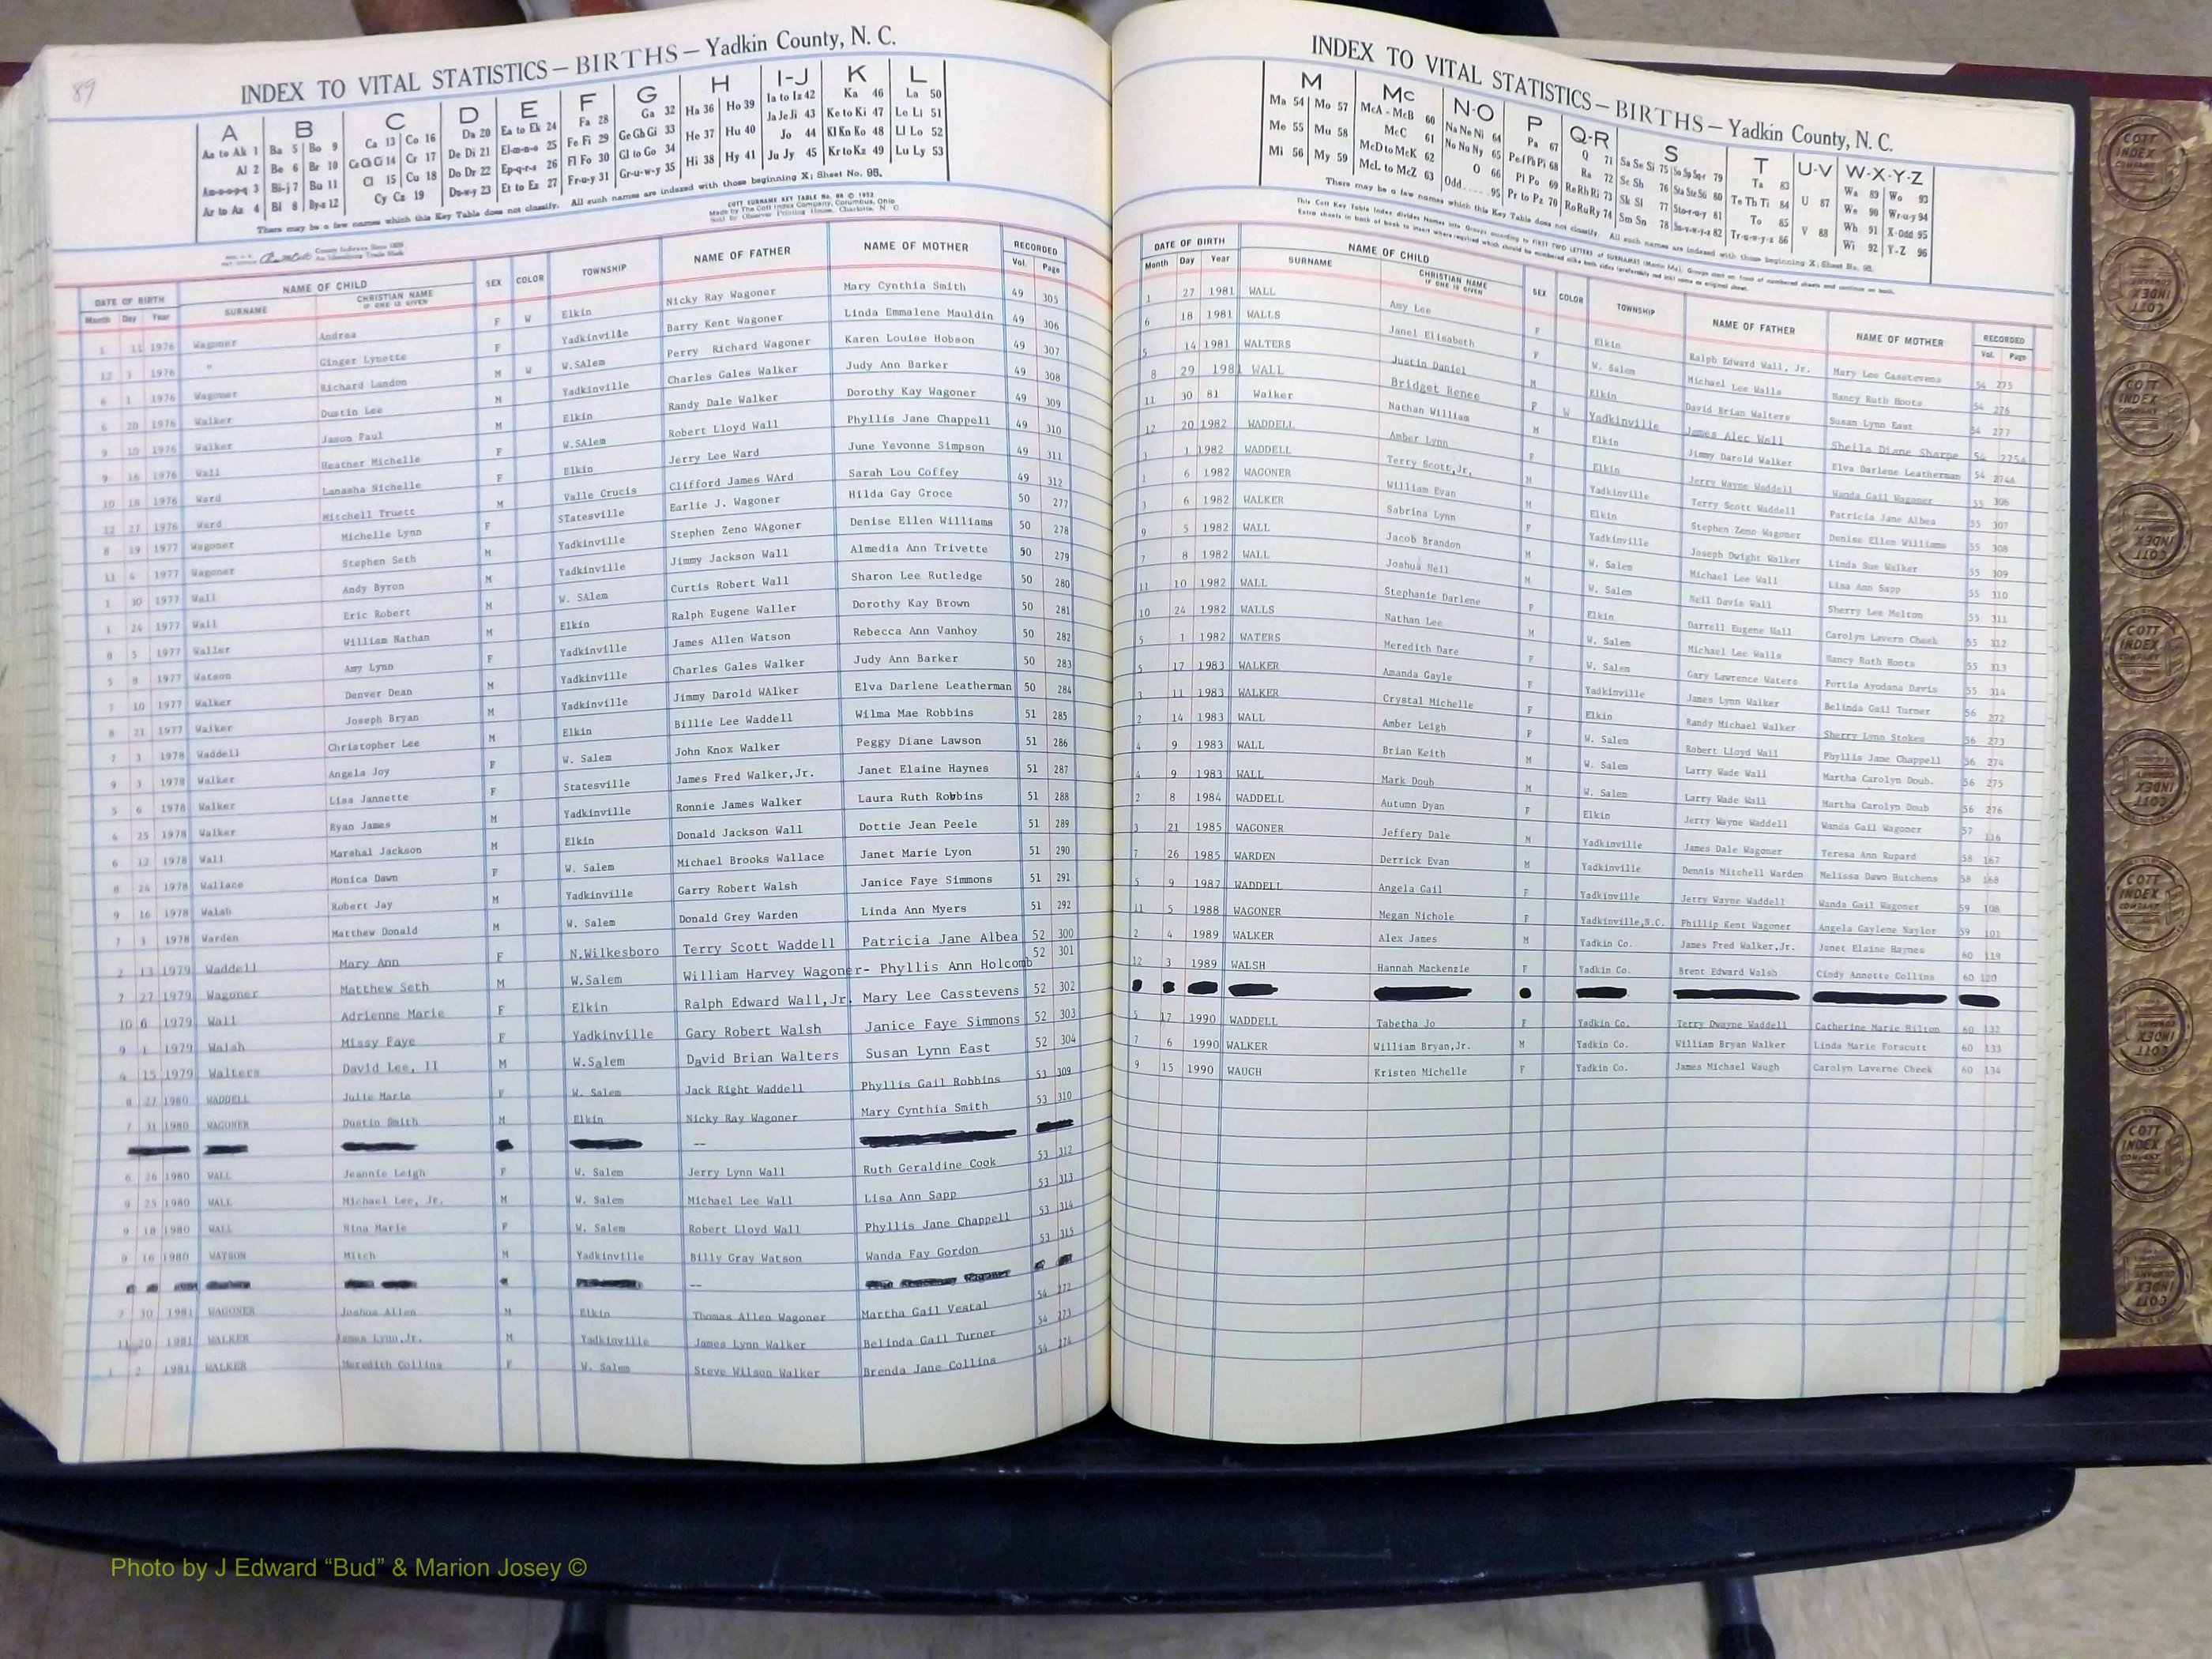 89
INDEX TO VITAL STATISTICS — BIRTHS — Yadkin County, N. C.
A B C D E F G H I-J K L
Aa to Ak 1 Ba 5 Bo 9 Ca 13 Co 16 Da 20 Ea to Ek 24 Fa 28 Ga 32 Ha 36 Ho 39 Ia to Iz 42 Ka 46 La 50
Al 2 Be 6 Br 10 Ce Ch Ci 14 Cr 17 De Di 21 El-m-n-o 25 Fe Fi 29 Ge Gh Gi 33 He 37 Hu 40 Ja Je Ji 43 Ke to Ki 47 Le Li 51
Am-n-o-p-q 3 Bi-j 7 Bu 11 Cl 15 Cu 18 Do Dr 22 Ep-q-r-s 26 Fl Fo 30 Gl to Go 34 Hi 38 Hy 41 Jo 44 Kl Kn Ko 48 Ll Lo 52
Ar to Az 4 Bl 8 By-z 12 Cy Cz 19 Du-w-y 23 Et to Ez 27 Fr-u-y 31 Gr-u-w-y 35 Ju Jy 45 Kr to Kz 49 Lu Ly 53
There may be a few names which this Key Table does not classify. All such names are indexed with those beginning X; Sheet No. 95.
COTT SURNAME KEY TABLE
Made by The Cott Index Company, Columbus, Ohio
Sold by Observer Printing House, Charlotte, N. C.
DATE OF BIRTH NAME OF CHILD SEX COLOR TOWNSHIP NAME OF FATHER NAME OF MOTHER RECORDED
Month Day Year SURNAME CHRISTIAN NAME IF ONE IS GIVEN Vol. Page
1 11 1976 Wagoner Andrea F W Elkin Nicky Ray Wagoner Mary Cynthia Smith 49 305
12 3 1976 " Ginger Lynette F Yadkinville Barry Kent Wagoner Linda Emmalene Mauldin 49 306
6 1 1976 Wagoner Richard Landon M W W.SAlem Perry Richard Wagoner Karen Louise Hobson 49 307
6 20 1976 Walker Dustin Lee M Yadkinville Charles Gales Walker Judy Ann Barker 49 308
9 10 1976 Walker Jason Paul M Elkin Randy Dale Walker Dorothy Kay Wagoner 49 309
9 16 1976 Wall Heather Michelle F W.SAlem Robert Lloyd Wall Phyllis Jane Chappell 49 310
10 18 1976 Ward Lanasha Nichelle F Elkin Jerry Lee Ward June Yevonne Simpson 49 311
12 27 1976 Ward Mitchell Truett M Valle Crucis Clifford James WArd Sarah Lou Coffey 49 312
8 19 1977 Wagoner Michelle Lynn F STatesville Earlie J. Wagoner Hilda Gay Groce 50 277
11 4 1977 Wagoner Stephen Seth M Yadkinville Stephen Zeno WAgoner Denise Ellen Williams 50 278
1 30 1977 Wall Andy Byron M Yadkinville Jimmy Jackson Wall Almedia Ann Trivette 50 279
1 24 1977 Wall Eric Robert M W. SAlem Curtis Robert Wall Sharon Lee Rutledge 50 280
8 5 1977 Waller William Nathan M Elkin Ralph Eugene Waller Dorothy Kay Brown 50 281
5 8 1977 Watson Amy Lynn F Yadkinville James Allen Watson Rebecca Ann Vanhoy 50 282
7 10 1977 Walker Denver Dean M Yadkinville Charles Gales Walker Judy Ann Barker 50 283
8 21 1977 Walker Joseph Bryan M Yadkinville Jimmy Darold WAlker Elva Darlene Leatherman 50 284
7 1 1978 Waddell Christopher Lee M Elkin Billie Lee Waddell Wilma Mae Robbins 51 285
9 3 1978 Walker Angela Joy F W. Salem John Knox Walker Peggy Diane Lawson 51 286
5 6 1978 Walker Lisa Jannette F Statesville James Fred Walker,Jr. Janet Elaine Haynes 51 287
4 25 1978 Walker Ryan James M Yadkinville Ronnie James Walker Laura Ruth Robbins 51 288
6 12 1978 Wall Marshal Jackson M Elkin Donald Jackson Wall Dottie Jean Peele 51 289
8 24 1978 Wallace Monica Dawn F W. Salem Michael Brooks Wallace Janet Marie Lyon 51 290
9 16 1978 Walsh Robert Jay M Yadkinville Garry Robert Walsh Janice Faye Simmons 51 291
7 3 1978 Warden Matthew Donald M W. Salem Donald Grey Warden Linda Ann Myers 51 292
2 13 1979 Waddell Mary Ann F N.Wilkesboro Terry Scott Waddell Patricia Jane Albea 52 300
7 27 1979 Wagoner Matthew Seth M W.Salem William Harvey Wagoner- Phyllis Ann Holcomb 52 301
10 6 1979 Wall Adrienne Marie F Elkin Ralph Edward Wall,Jr. Mary Lee Casstevens 52 302
9 1 1979 Walsh Missy Faye F Yadkinville Gary Robert Walsh Janice Faye Simmons 52 303
4 15 1979 Walters David Lee, II M W.Salem David Brian Walters Susan Lynn East 52 304
8 27 1980 WADDELL Julie Marie F W. Salem Jack Right Waddell Phyllis Gail Robbins 53 309
7 31 1980 WAGONER Dustin Smith M Elkin Nicky Ray Wagoner Mary Cynthia Smith 53 310
--
6 26 1980 WALL Jeannie Leigh F W. Salem Jerry Lynn Wall Ruth Geraldine Cook 53 312
9 25 1980 WALL Michael Lee, Jr. M W. Salem Michael Lee Wall Lisa Ann Sapp 53 313
9 18 1980 WALL Nina Marie F W. Salem Robert Lloyd Wall Phyllis Jane Chappell 53 314
9 16 1980 WATSON Mitch M Yadkinville Billy Gray Watson Wanda Fay Gordon 53 315
--
7 30 1981 WAGONER Joshua Allen M Elkin Thomas Allen Wagoner Martha Gail Vestal 54 272
11 20 1981 WALKER James Lynn,Jr. M Yadkinville James Lynn Walker Belinda Gail Turner 54 273
1 2 1981 WALKER Meredith Collins F W. Salem Steve Wilson Walker Brenda Jane Collins 54 274
INDEX TO VITAL STATISTICS — BIRTHS — Yadkin County, N. C.
M Mc N-O P Q-R S T U-V W-X-Y-Z
Ma 54 Mo 57 McA - McB 60 Na Ne Ni 64 Pa 67 Q 71 Sa Se Si 75 So Sp Sq-r 79 Ta 83 U 87 Wa 89 Wo 93
Me 55 Mu 58 McC 61 No Nu Ny 65 Pe-f Ph Pi 68 Ra 72 Sc Sh 76 Sta Ste Sti 80 Te Th Ti 84 V 88 We 90 Wr-u-y 94
Mi 56 My 59 McD to McK 62 O 66 Pl Po 69 Re Rh Ri 73 Sk Sl 77 Sto-r-u-y 81 To 85 Wh 91 X-Odd 95
McL to McZ 63 Odd 95 Pr to Pz 70 Ro Ru Ry 74 Sm Sn 78 Su-v-w-y-z 82 Tr-u-w-y-z 86 Wi 92 Y-Z 96
There may be a few names which this Key Table does not classify. All such names are indexed with those beginning X; Sheet No. 95.
DATE OF BIRTH NAME OF CHILD SEX COLOR TOWNSHIP NAME OF FATHER NAME OF MOTHER RECORDED
Month Day Year SURNAME CHRISTIAN NAME IF ONE IS GIVEN Vol. Page
1 27 1981 WALL Amy Lee F Elkin Ralph Edward Wall, Jr. Mary Lee Casstevens 54 275
6 18 1981 WALLS Janel Elisabeth F W. Salem Michael Lee Walls Nancy Ruth Hoots 54 276
5 14 1981 WALTERS Justin Daniel M Elkin David Brian Walters Susan Lynn East 54 277
8 29 1981 WALL Bridget Renee F W Yadkinville James Alec Wall Sheila Diane Sharpe 54 275A
11 30 81 Walker Nathan William M Elkin Jimmy Darold Walker Elva Darlene Leatherman 54 274A
12 20 1982 WADDELL Amber Lynn F Elkin Jerry Wayne Waddell Wanda Gail Wagoner 55 306
1 1 1982 WADDELL Terry Scott,Jr. M Yadkinville Terry Scott Waddell Patricia Jane Albea 55 307
1 6 1982 WAGONER William Evan M Elkin Stephen Zeno Wagoner Denise Ellen Williams 55 308
1 6 1982 WALKER Sabrina Lynn F Yadkinville Joseph Dwight Walker Linda Sue Walker 55 309
9 5 1982 WALL Jacob Brandon M W. Salem Michael Lee Wall Lisa Ann Sapp 55 310
7 8 1982 WALL Joshua Neil M W. Salem Neil Davis Wall Sherry Lee Melton 55 311
11 10 1982 WALL Stephanie Darlene F Elkin Darrell Eugene Wall Carolyn Lavern Cheek 55 312
10 24 1982 WALLS Nathan Lee M W. Salem Michael Lee Walls Nancy Ruth Hoots 55 313
5 1 1982 WATERS Meredith Dare F W. Salem Gary Lawrence Waters Portia Ayodana Davis 55 314
5 17 1983 WALKER Amanda Gayle F Yadkinville James Lynn Walker Belinda Gail Turner 56 272
3 11 1983 WALKER Crystal Michelle F Elkin Randy Michael Walker Sherry Lynn Stokes 56 273
2 14 1983 WALL Amber Leigh F W. Salem Robert Lloyd Wall Phyllis Jane Chappell 56 274
4 9 1983 WALL Brian Keith M W. Salem Larry Wade Wall Martha Carolyn Doub. 56 275
4 9 1983 WALL Mark Doub M W. Salem Larry Wade Wall Martha Carolyn Doub 56 276
2 8 1984 WADDELL Autumn Dyan F Elkin Jerry Wayne Waddell Wanda Gail Wagoner 57 116
3 21 1985 WAGONER Jeffery Dale M Yadkinville James Dale Wagoner Teresa Ann Rupard 58 167
7 26 1985 WARDEN Derrick Evan M Yadkinville Dennis Mitchell Warden Melissa Dawn Hutchens 58 168
5 9 1987 WADDELL Angela Gail F Yadkinville Jerry Wayne Waddell Wanda Gail Wagoner 59 108
11 5 1988 WAGONER Megan Nichole F Yadkinville,N.C. Phillip Kent Wagoner Angela Gaylene Naylor 59 101
2 4 1989 WALKER Alex James M Yadkin Co. James Fred Walker,Jr. Janet Elaine Haynes 60 119
12 3 1989 WALSH Hannah Mackenzie F Yadkin Co. Brent Edward Walsh Cindy Annette Collins 60 120
5 17 1990 WADDELL Tabetha Jo F Yadkin Co. Terry Dwayne Waddell Catherine Marie Hilton 60 132
7 6 1990 WALKER William Bryan,Jr. M Yadkin Co. William Bryan Walker Linda Marie Forscutt 60 133
9 15 1990 WAUGH Kristen Michelle F Yadkin Co. James Michael Waugh Carolyn Laverne Cheek 60 134
COTT INDEX COMPANY
Photo by J Edward “Bud” & Marion Josey ©